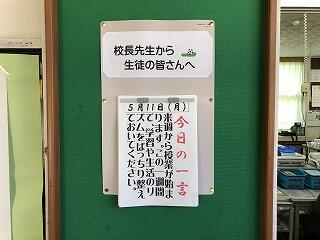 校長先生から
生徒の皆さんへ
5月11日(月)
今日の一言
来週から授業が始ま
ります。この一週間
で、学習や生活のリ
ズムをばっちり整え
ておいてください。